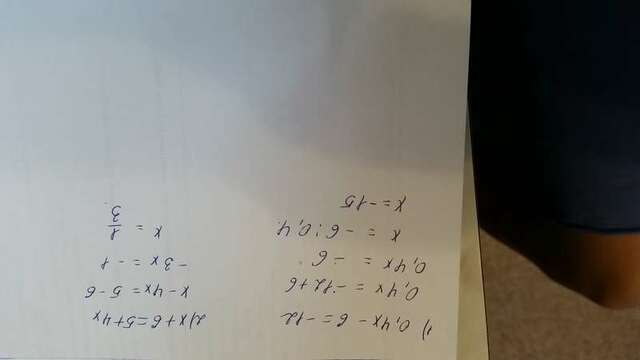 1) 0,4x - 6 = -12
0,4x = -12 + 6
0,4x = -6
x = -6 : 0,4
x = -15
2) x + 6 = 5 + 4x
x - 4x = 5 - 6
-3x = -1
x = 1/3